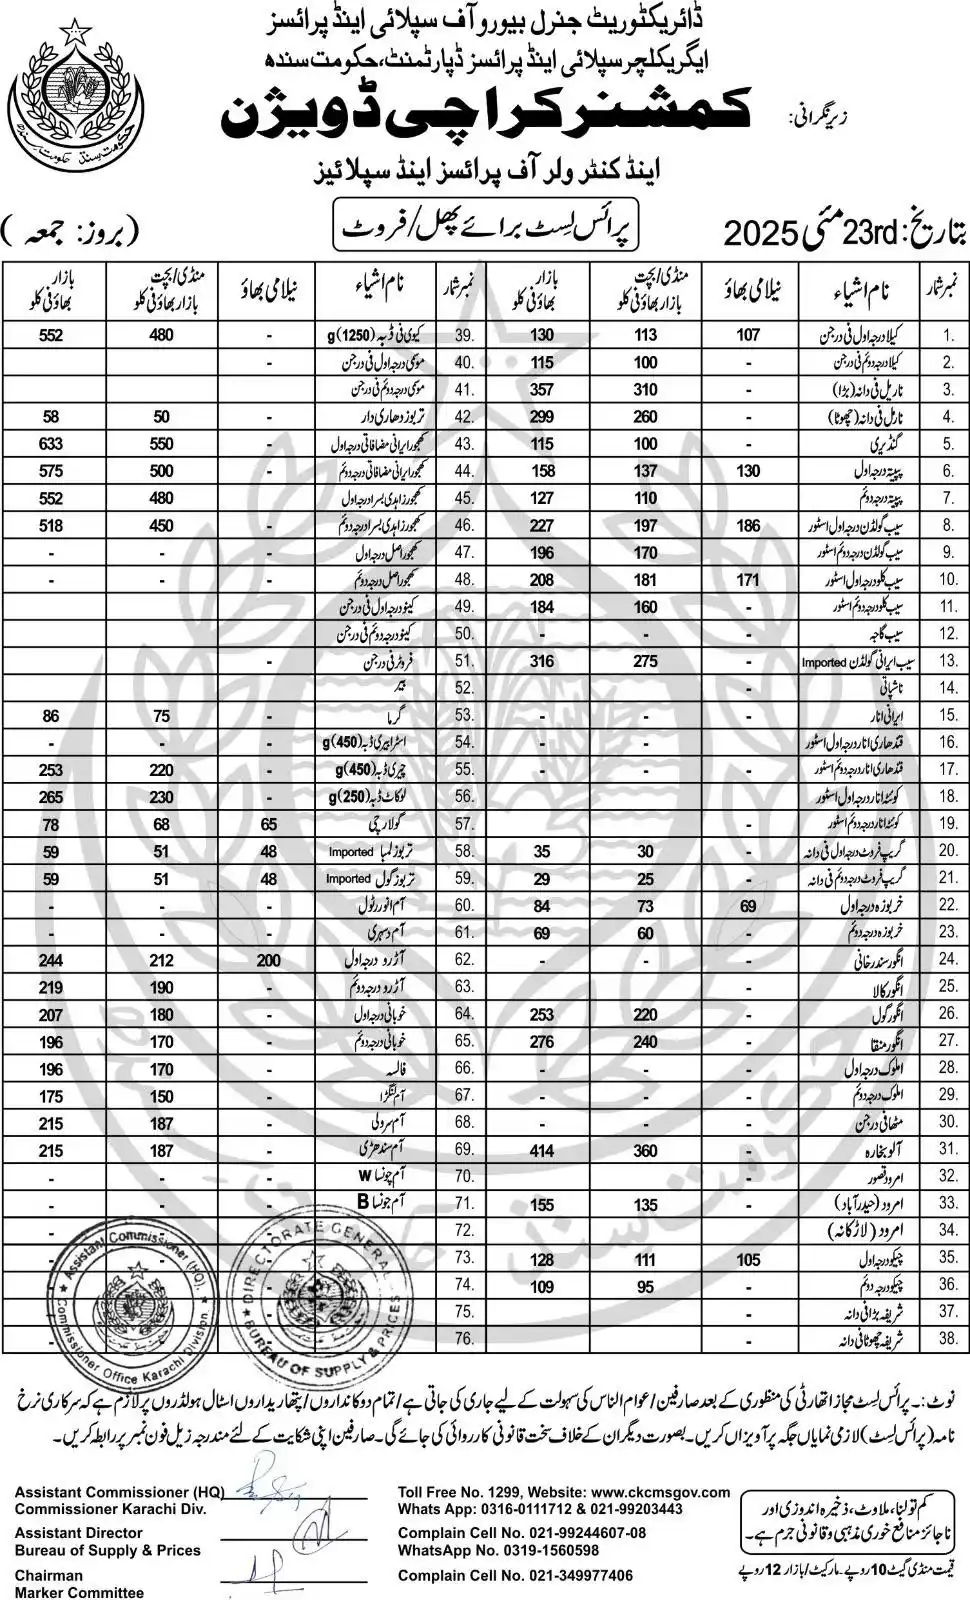 ڈائریکٹوریٹ جنرل بیورو آف سپلائی اینڈ پرائسز
ایگریکلچر سپلائی اینڈ پرائسز ڈپارٹمنٹ، حکومت سندھ
زیر نگرانی: کمشنر کراچی ڈویژن
اینڈ کنٹرولر آف پرائسز اینڈ سپلائیز
بتاریخ: 23rd مئی 2025 پرائس لسٹ برائے پھل/فروٹ (بروز: جمعہ)
نمبر شمار نام اشیاء نیلامی بھاؤ منڈی/بچت بازار بھاؤ فی کلو بازار بھاؤ فی کلو نمبر شمار نام اشیاء نیلامی بھاؤ منڈی/بچت بازار بھاؤ فی کلو بازار بھاؤ فی کلو
1. کیلا درجہ اول فی درجن 107 113 130 39. کیوی فی ڈبہ (1250)g - 480 552
2. کیلا درجہ دوئم فی درجن - 100 115 40. موسمی درجہ اول فی درجن -
3. ناریل فی دانہ (بڑا) - 310 357 41. موسمی درجہ دوئم فی درجن
4. ناریل فی دانہ (چھوٹا) - 260 299 42. تربوز دھاری دار - 50 58
5. گنڈیری - 100 115 43. کھجور ایرانی مضافاتی درجہ اول - 550 633
6. پپیتہ درجہ اول 130 137 158 44. کھجور ایرانی مضافاتی درجہ دوئم - 500 575
7. پپیتہ درجہ دوئم - 110 127 45. کھجور زاہدی بسرا درجہ اول - 480 552
8. سیب گولڈن درجہ اول اسٹور 186 197 227 46. کھجور زاہدی بسرا درجہ دوئم - 450 518
9. سیب گولڈن درجہ دوئم اسٹور - 170 196 47. کھجور اصل درجہ اول - - -
10. سیب کلو درجہ اول اسٹور 171 181 208 48. کھجور اصل درجہ دوئم - - -
11. سیب کلو درجہ دوئم اسٹور - 160 184 49. کینو درجہ اول فی درجن -
12. سیب گاچہ - - - 50. کینو درجہ دوئم فی درجن -
13. سیب ایرانی گولڈن Imported - 275 316 51. فروٹر فی درجن -
14. ناشپاتی - 52. بیر
15. ایرانی انار - - - 53. گرما - 75 86
16. قندھاری انار درجہ اول اسٹور - - - 54. اسٹرابیری ڈبہ (450)g - - -
17. قندھاری انار درجہ دوئم اسٹور - - - 55. چیری ڈبہ (450)g - 220 253
18. کوئٹہ انار درجہ اول اسٹور - 56. لوکاٹ ڈبہ (250)g - 230 265
19. کوئٹہ انار درجہ دوئم اسٹور - 57. گولارچی 65 68 78
20. گریپ فروٹ درجہ اول فی دانہ - 30 35 58. تربوز لمبا Imported 48 51 59
21. گریپ فروٹ درجہ دوئم فی دانہ - 25 29 59. تربوز گول Imported 48 51 59
22. خربوزہ درجہ اول 69 73 84 60. آم انور رٹول - - -
23. خربوزہ درجہ دوئم - 60 69 61. آم دسہری - - -
24. انگور سندرخانی - - - 62. آڑو درجہ اول 200 212 244
25. انگور کالا - 63. آڑو درجہ دوئم - 190 219
26. انگور گول - 220 253 64. خوبانی درجہ اول - 180 207
27. انگور منقا - 240 276 65. خوبانی درجہ دوئم - 170 196
28. املوک درجہ اول - - - 66. فالسہ - 170 196
29. املوک درجہ دوئم - - - 67. آم لنگڑا - 150 175
30. مٹھا فی درجن - - - 68. آم سرولی - 187 215
31. آلو بخارہ - 360 414 69. آم سندھڑی - 187 215
32. امرود قصور - 70. آم چونسا W - - -
33. امرود (حیدرآباد) - 135 155 71. آم چونسا B - - -
34. امرود (لاڑکانہ) 72.
35. چیکو درجہ اول 105 111 128 73.
36. چیکو درجہ دوئم - 95 109 74.
37. شریفہ بڑا فی دانہ - 75.
38. شریفہ چھوٹا فی دانہ - 76.
Assistant Commissioner (HQ)
Commissioner Office Karachi Division
DIRECTORATE GENERAL
BUREAU OF SUPPLY & PRICES
نوٹ:۔ پرائس لسٹ مجاز اتھارٹی کی منظوری کے بعد صارفین/عوام الناس کی سہولت کے لیے جاری کی جاتی ہے/تمام دوکانداروں/پتھاریداروں اسٹال ہولڈروں پر لازم ہے کہ سرکاری نرخ
نامہ (پرائس لسٹ) لازمی نمایاں جگہ پر آویزاں کریں۔ بصورت دیگر ان کے خلاف سخت قانونی کارروائی کی جائے گی۔ صارفین اپنی شکایت کے لئے مندرجہ زیل فون نمبر پر رابطہ کریں۔
Assistant Commissioner (HQ)
Commissioner Karachi Div.
Assistant Director
Bureau of Supply & Prices
Chairman
Marker Committee
Toll Free No. 1299, Website: www.ckcmsgov.com
Whats App: 0316-0111712 & 021-99203443
Complain Cell No. 021-99244607-08
WhatsApp No. 0319-1560598
Complain Cell No. 021-349977406
کم تولنا، ملاوٹ، ذخیرہ اندوزی اور
ناجائز منافع خوری مذہبی و قانونی جرم ہے۔
قیمت منڈی گیٹ 10 روپے۔ مارکیٹ/بازار 12 روپے